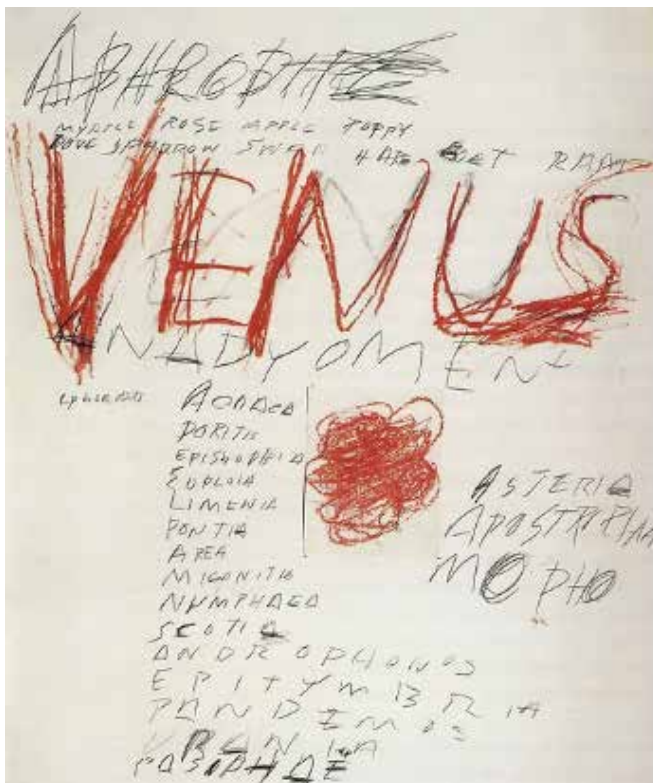 APHRODITE
MYRTLE ROSE APPLE POPPY
DOVE SPARROW SWAN HARE RAM
VENUS
ANADYOMENE
DORITIS
EPISKOPHIA
EUPLOIA
LIMENIA
PONTIA
AREA
MIGONITIS
NUMPHAEA
SCOTIA
ANDROPHONOS
EPITYMBRIA
PANDIMOS
URANIA
PASIPHAE
ASTERIA
MOPHO